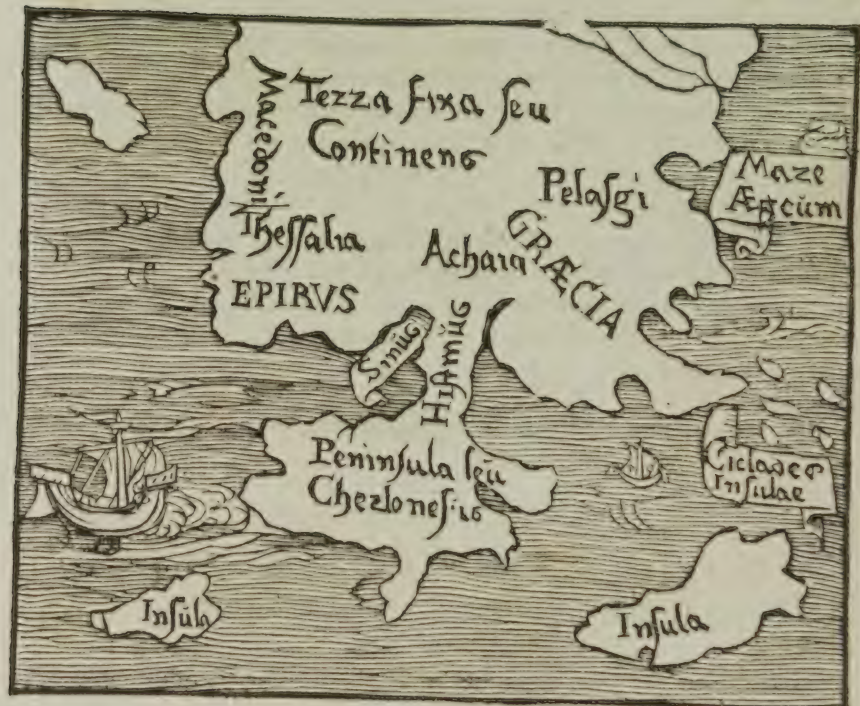 Macedoni
Terra fixa ſeu
Continens
Pelaſgi
Mare
Theſſalia
Achaia
GRÆCIA
EPIRVS
Hiſtmus
Peninſula ſeu
Cherſoneſus
Ciclades
Inſulae
Inſula
Inſula